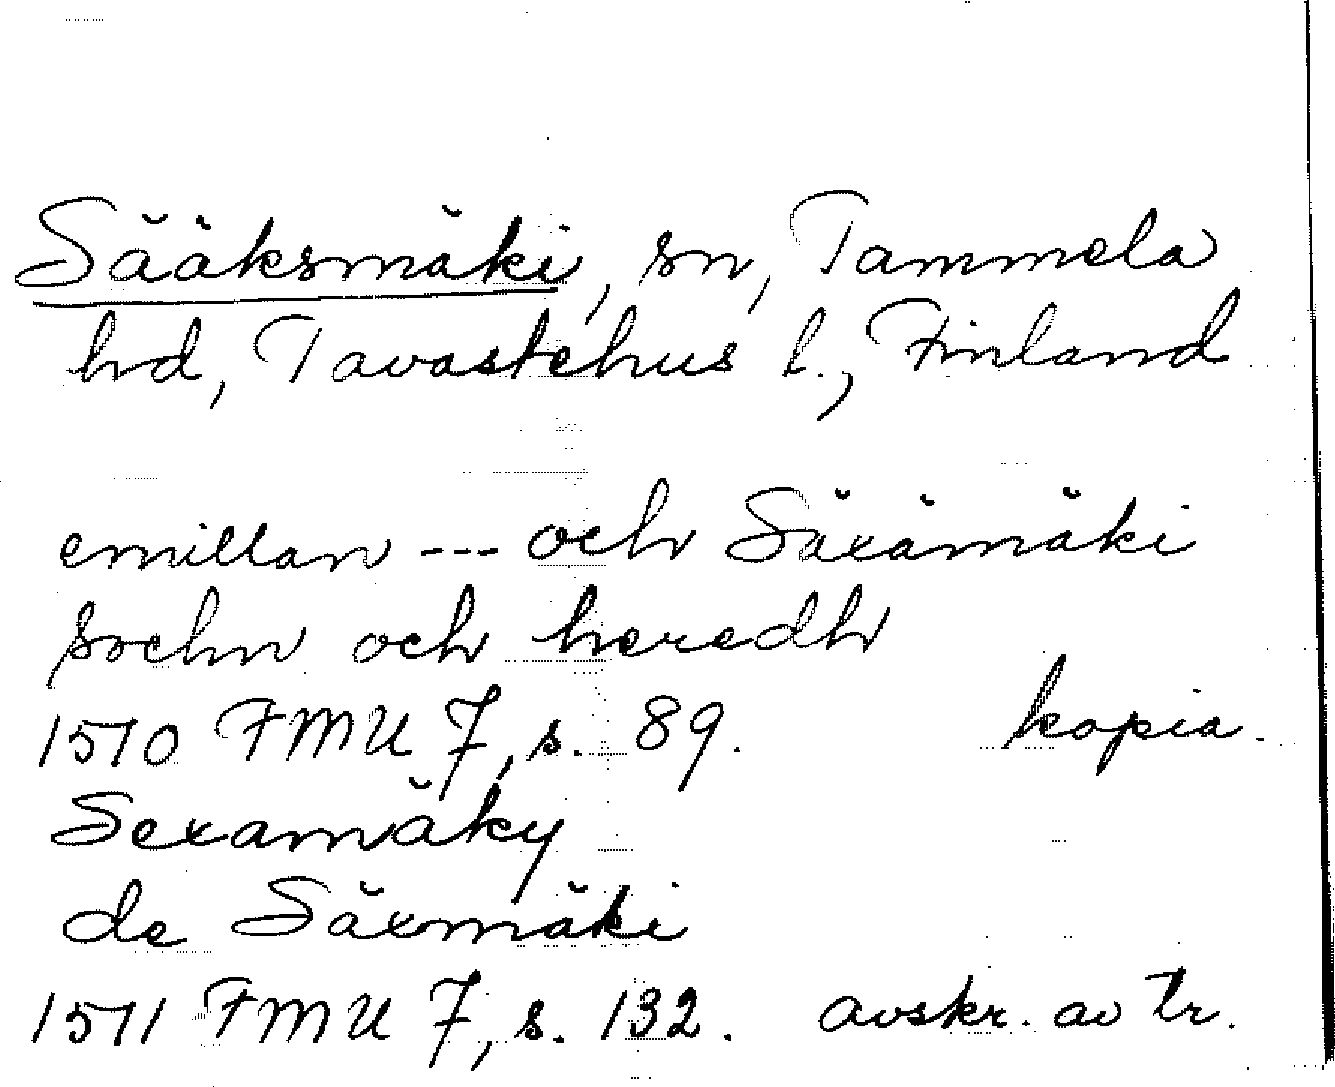 Sääksmäki, sn, Tammela
hd, Tavastehus l., Finland
emillan --- och Säxämäki
sochn och heredh
1510 FMU 7, s. 89. kopia.
Sexamäky
de Säxmäki
1511 FMU 7, s. 132. avskr. av tr.